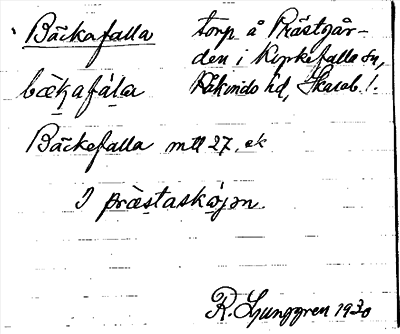 Bäckafalla torp å Prästgår-
den i Kyrkefalla sn,
bækafála Kåkinds hd, Skarab. l.
Bäckefalla mtl 27. ek
I præstaskójən.
R. Ljunggren 1930